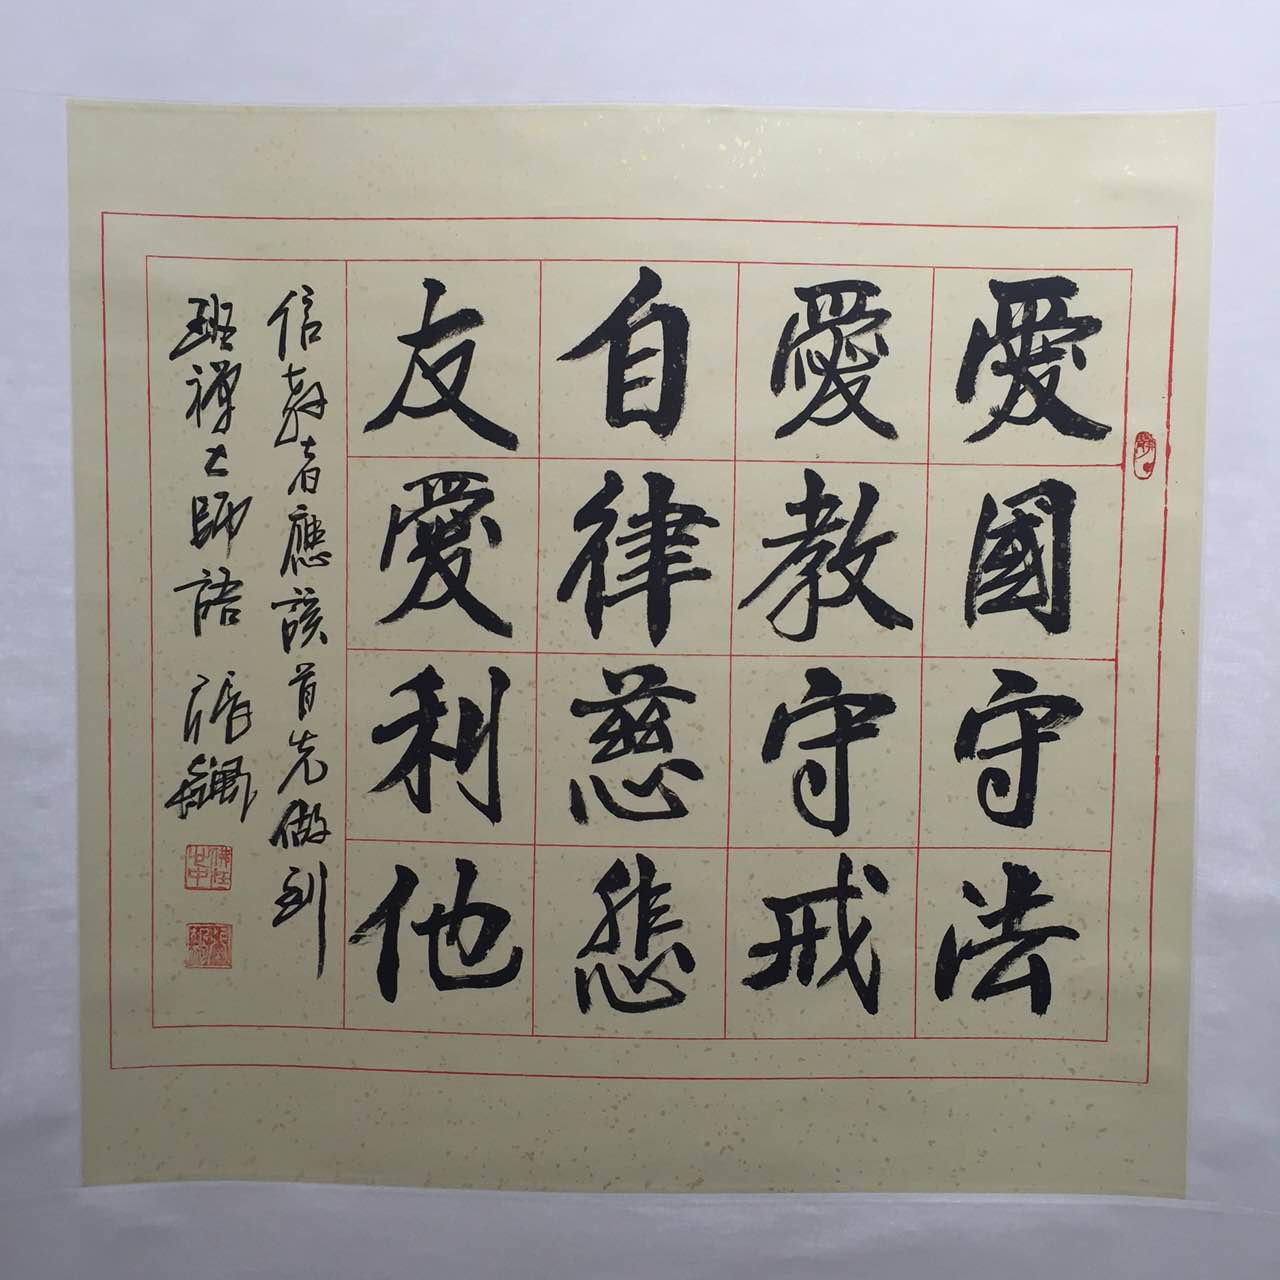 愛國守法
愛教守戒
自律慈悲
友愛利他
信教者應該首先做到
班禪大師語 張鐵
佛在心中